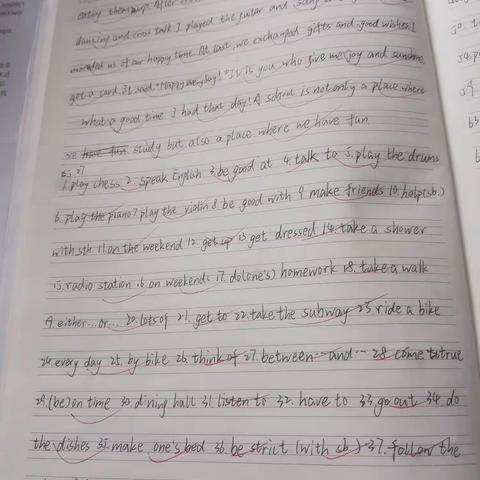 eating them After
dancing and cross talk I played the guitar and sang
us of our happy time. At last, we exchanged gifts and good wishes. I
got a card. It said, "Happy everyday!" "It is you who give me joy and sunshine
what a good time I had that day! A school is not only a place where
we have fun study but also a place where we have fun
1.play chess 2. speak English 3.be good at 4.talk to 5.play the drums
6.play the piano 7.play the violin 8.be good with 9.make friends 10.help(sb.)
with sth 11.on the weekend 12.get up 13.get dressed 14.take a shower
15.radio station 16.on weekends 17.do(one's) homework 18.take a walk
19.either...or... 20.lots of 21.get to 22.take the subway 23.ride a bike
24.every day 25.by bike 26.think of 27.between...and... 28.come true
29.(be)on time 30.dining hall 31.listen to 32.have to 33.go out 34.do
the dishes 35.make one's bed 36.be strict (with sb.) 37.follow the